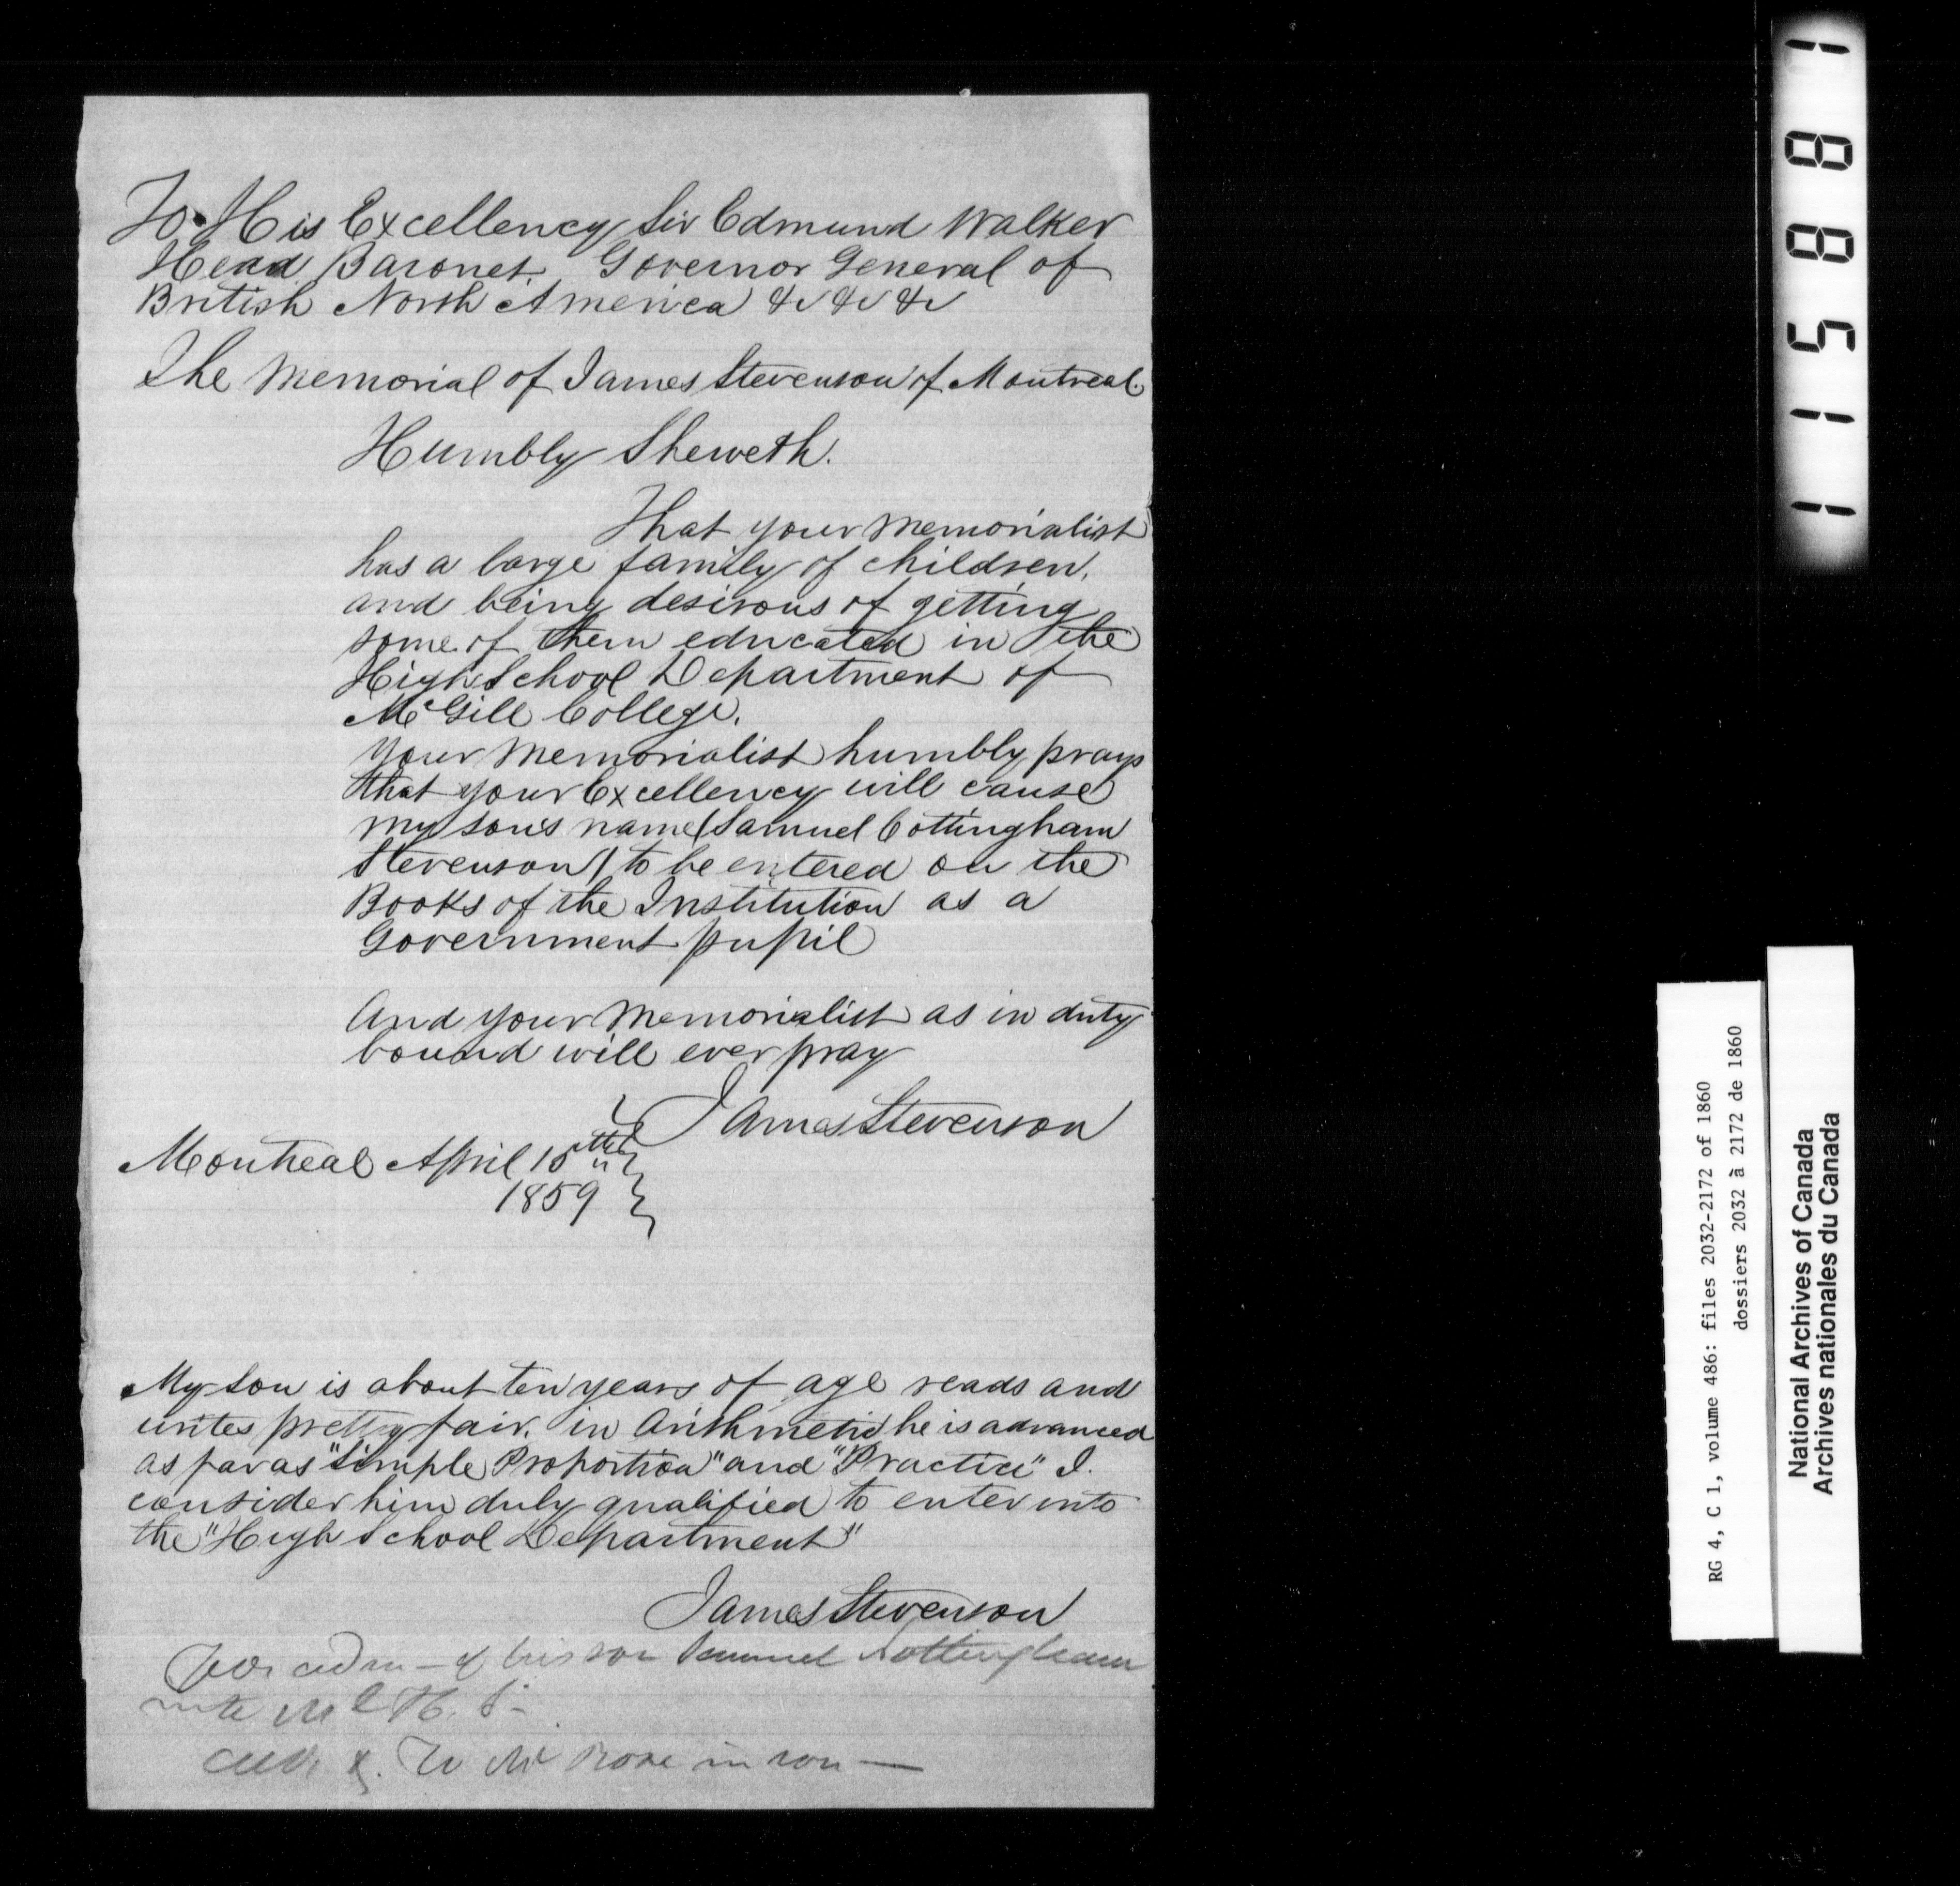 To His Excellency Sir Edmund Walker
Head Baronet, Governor General of
British North America &c &c &c
The Memorial of James Stevenson of Montreal.
Humbly Sheweth.
That your Memorialist
has a large family of children,
and being desirous of getting
some of them educated in the
High School Department of
McGill College.
Your Memorialist humbly prays
that your Excellency will cause
my son's name (Samuel Cottingham
Stevenson) to be entered on the
Books of the Institution as a
Government pupil
And your Memorialist as in duty
bound will ever pray
James Stevenson
Montreal April 15th
1859
My son is about ten years of age reads and
writes pretty fair. in Arithmetic he is advanced
as far as "Simple Proportion" and "Practice" I.
consider him duly qualified to enter into
the "High School Department"
James Stevenson
of his son Samuel Cottingham
H. S.
To Mr Rose in
11588 1
RG 4, C 1, volume 486: files 2032-2172 of 1860
dossiers 2032 à 2172 de 1860
National Archives of Canada
Archives nationales du Canada